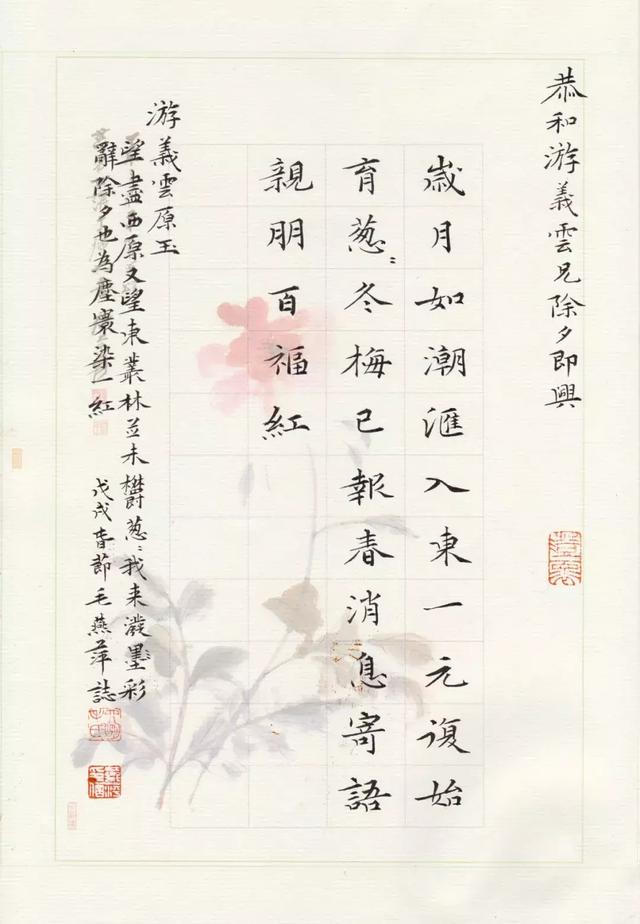 恭和游義雲兄除夕即興
歲月如潮滙入東一元復始
育葱〻冬梅已報春消息寄語
親朋百福紅
游義雲原玉
望盡西原又望東叢林並未欝葱〻我来潑墨彩
辭除夕也為塵寰染一紅
戊戌春節毛燕萍誌